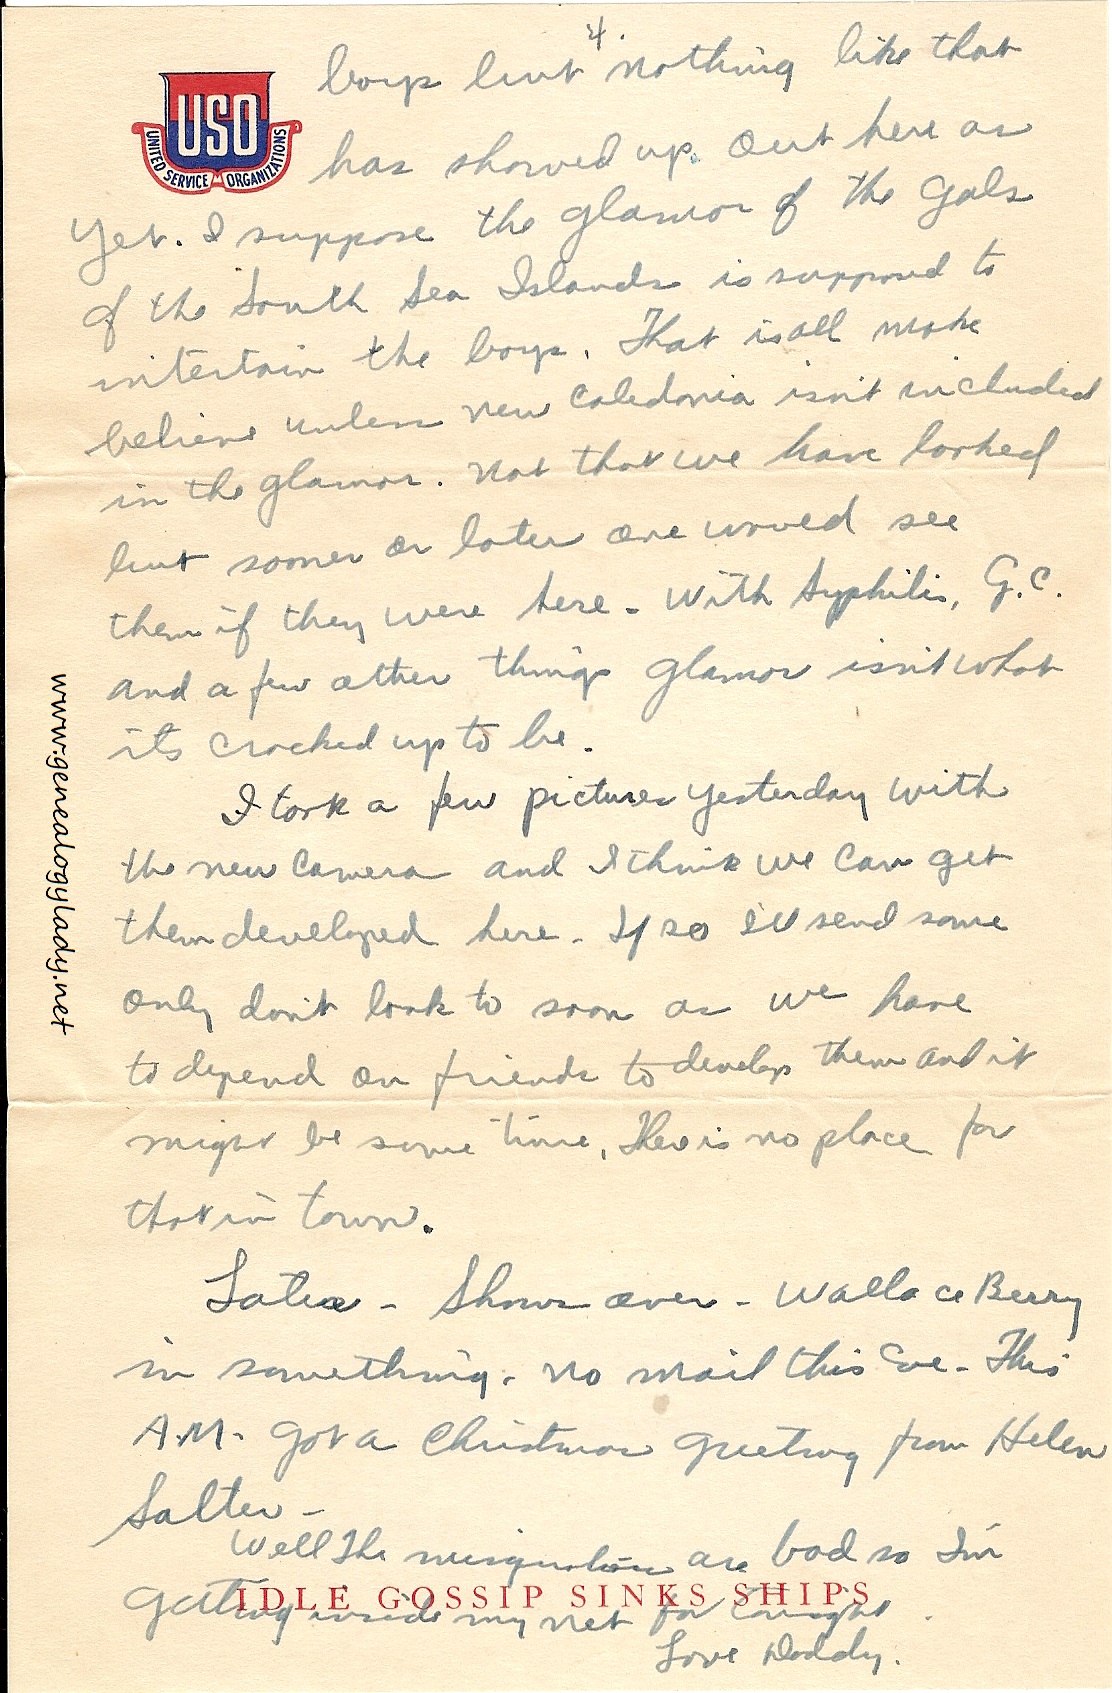 4.
USO
UNITED SERVICE ORGANIZATIONS
boys but nothing like that
has showed up out here as
yet. I suppose the glamor of the gals
of the South Sea Islands is supposed to
intertain the boys. That is all make
believe unless New Caledonia isn't included
in the glamor. Not that we have looked
but sooner or later one would see
them if they were here - With Syphilis, G.C.
and a few other things glamor isn't what
its cracked up to be.
I took a few pictures yesterday with
the new camera and I think we can get
them developed here - If so I'll send some
only don't look to soon as we have
to depend on friends to develop them and it
might be some time. There is no place for
that in town.
Later - Shows over - Wallace Berry
in something. No mail this eve - This
A.M. got a Christmas greeting from Helen
Salter -
Well the misquitoes are bad so I'm
getting inside my net for tonight.
Love Daddy.
IDLE GOSSIP SINKS SHIPS
www.genealogylady.net